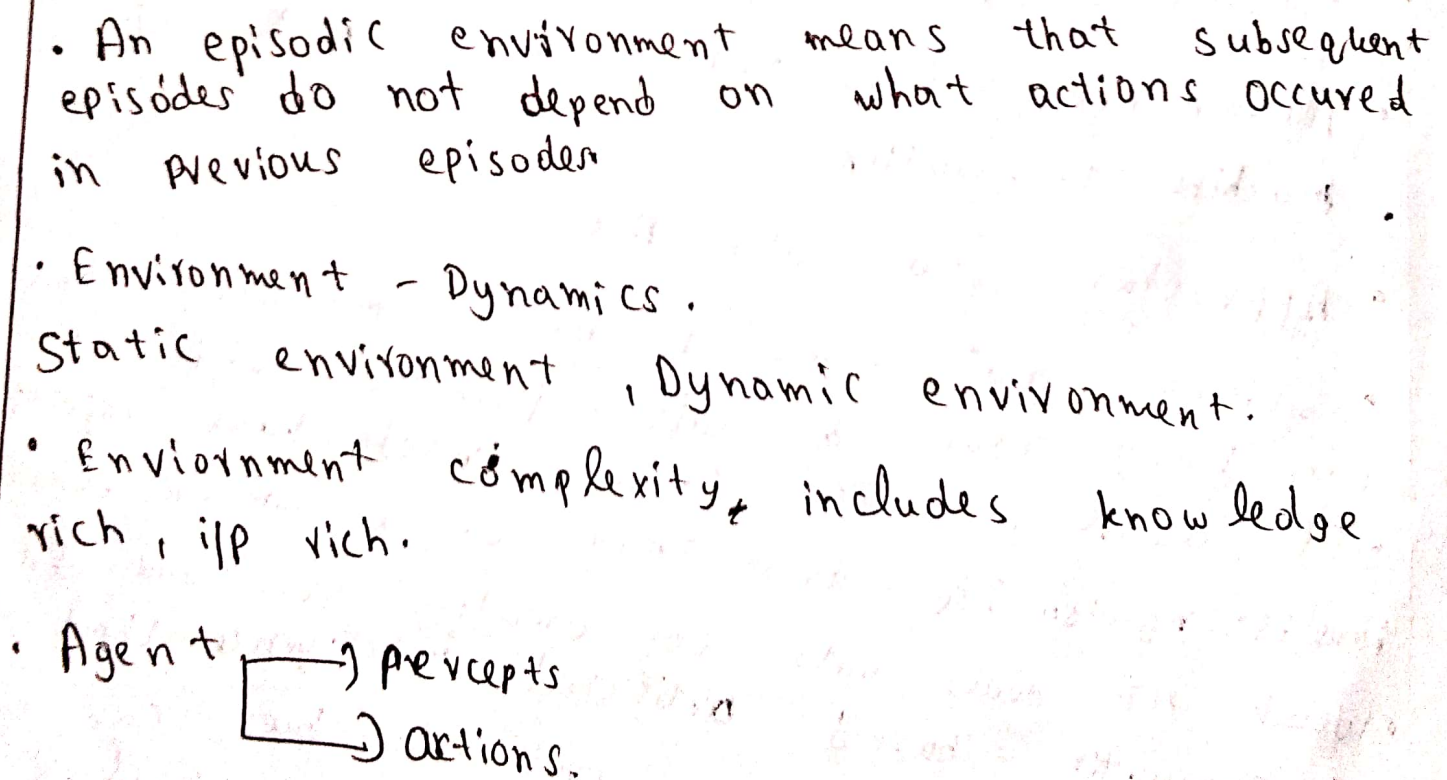 • An episodic environment means that subsequent
episodes do not depend on what actions occured
in previous episodes
• Environment - Dynamics.
Static environment, Dynamic environment.
• Enviornment complexity, includes knowledge
rich, i/p rich.
• Agent → percepts
→ actions.